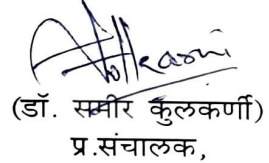 (डॉ. समीर कुलकर्णी)
प्र.संचालक,